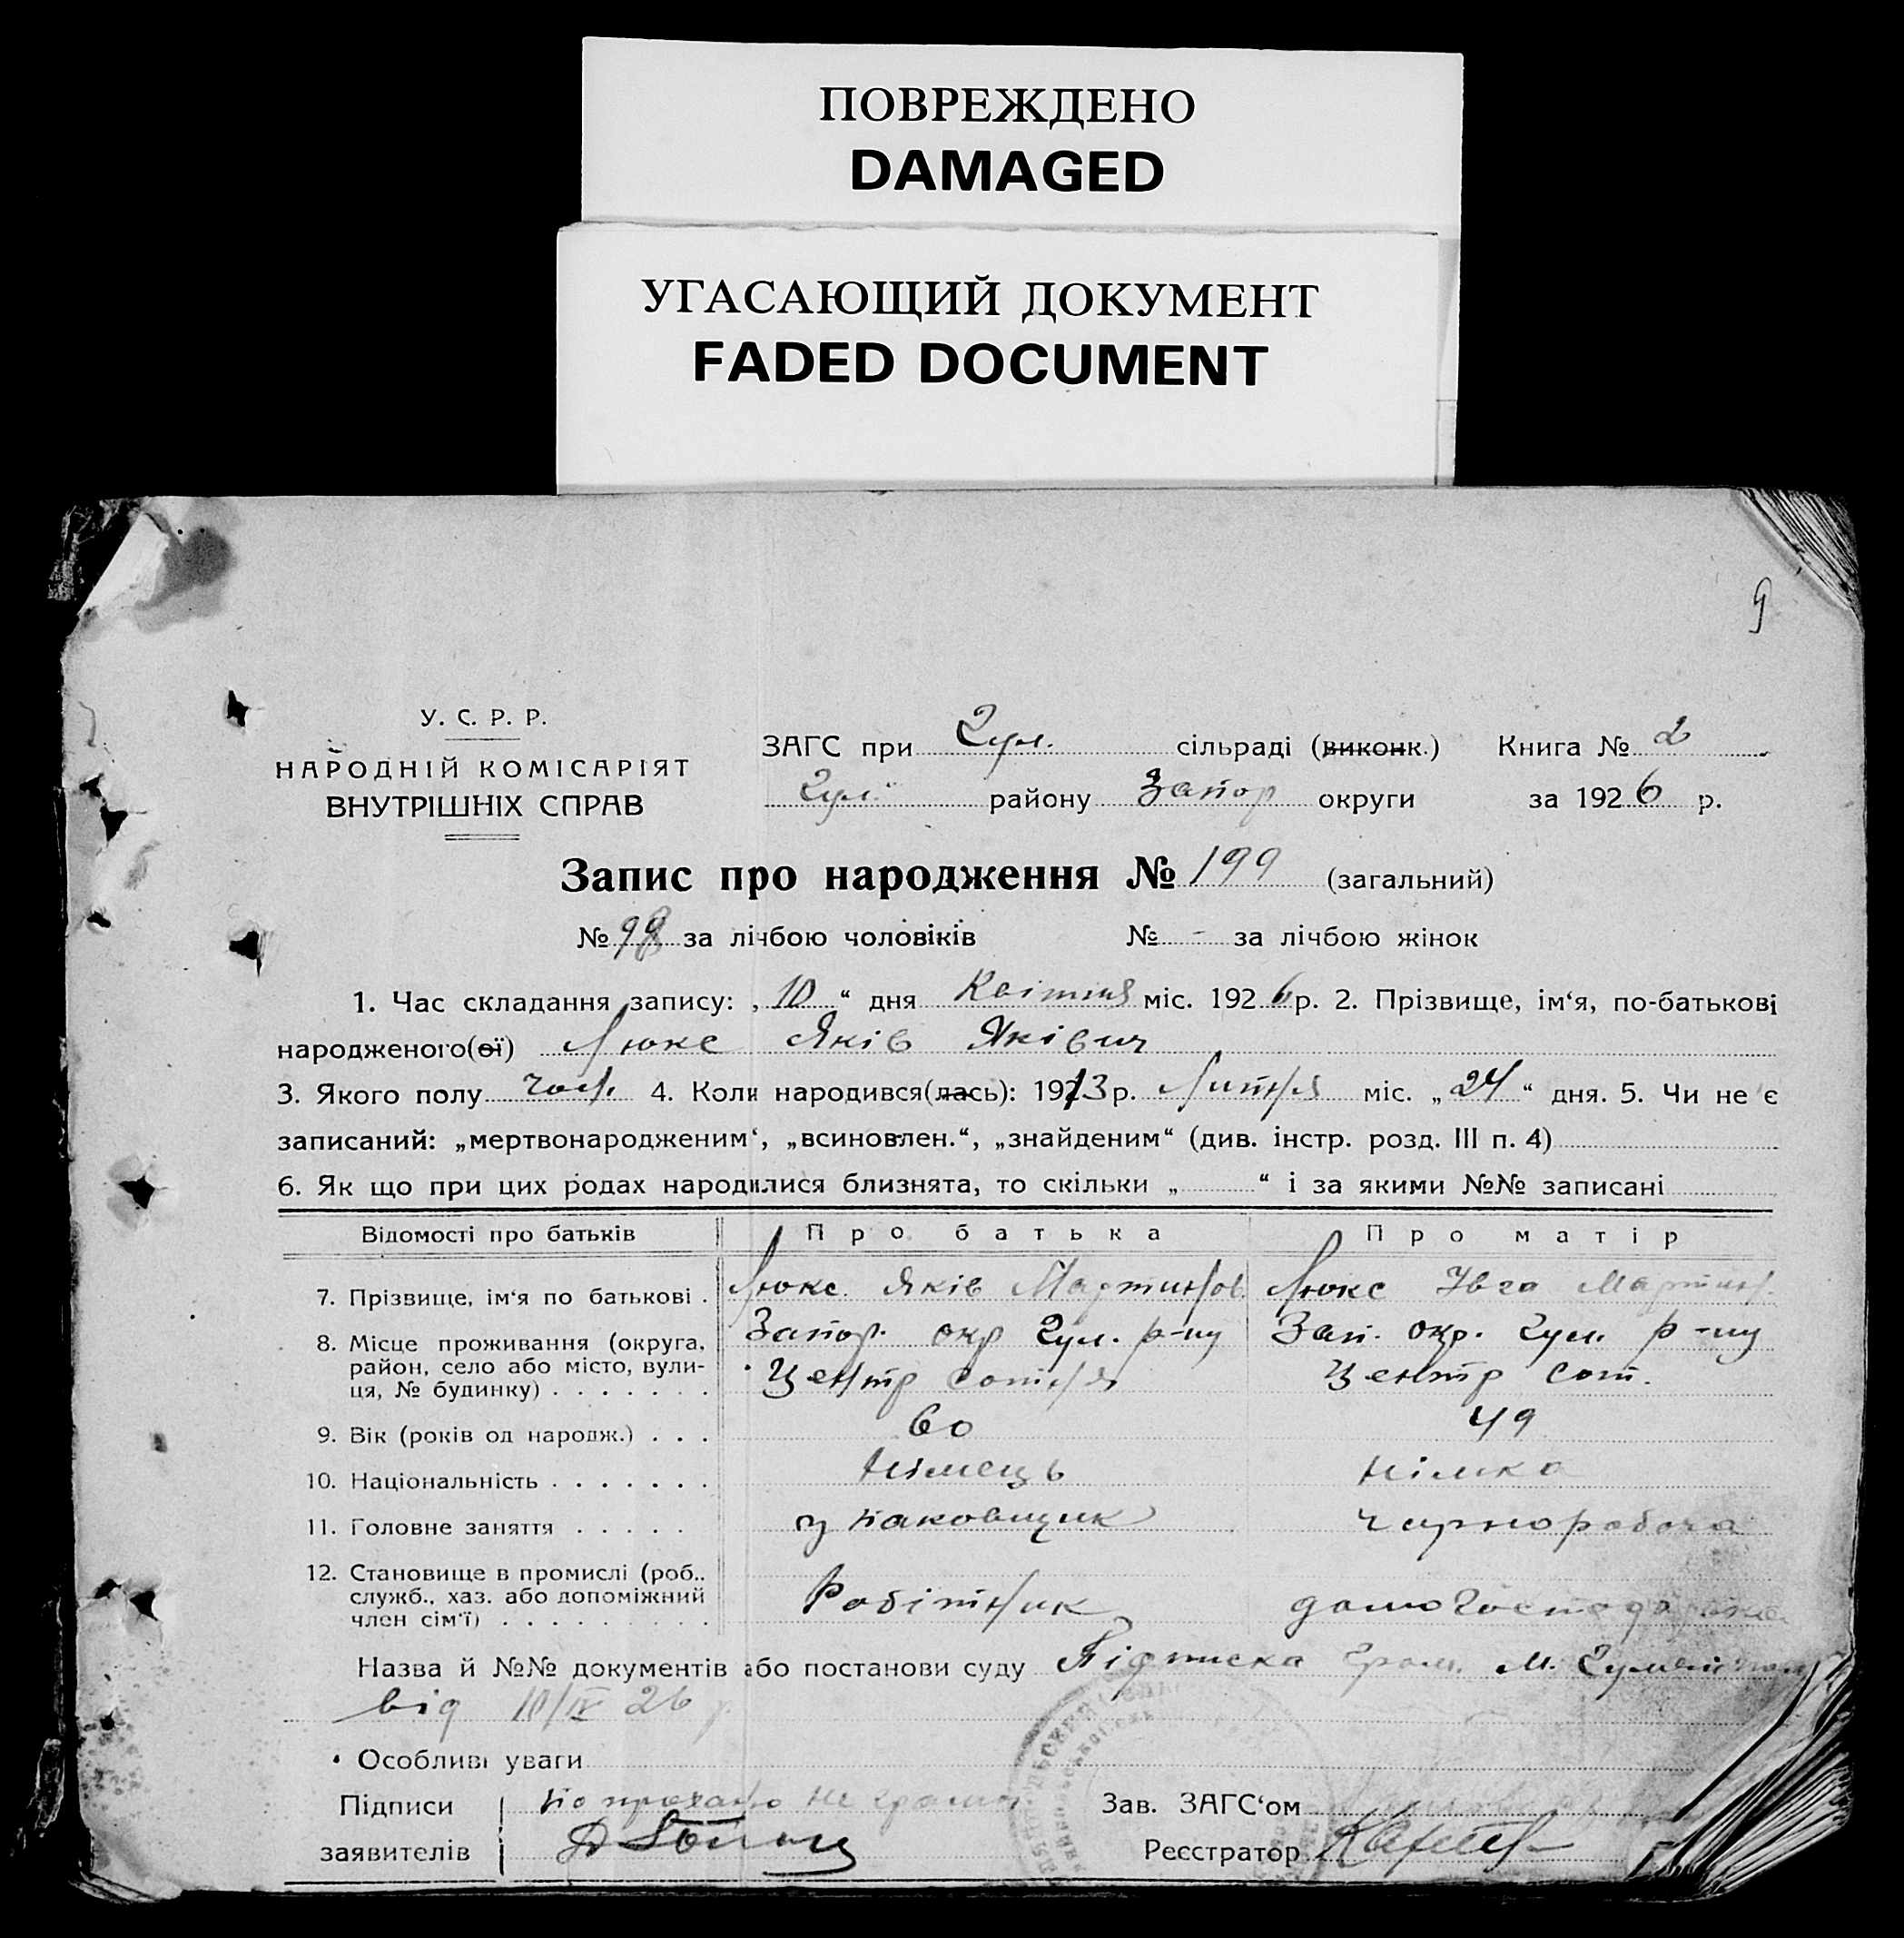 ПОВРЕЖДЕНО
DAMAGED
УГАСАЮЩИЙ ДОКУМЕНТ
FADED DOCUMENT
9
У. С. Р. Р.
НАРОДНІЙ КОМІСАРІЯТ
ВНУТРІШНІХ СПРАВ
ЗАГС при Гул. сільраді (виконк.) Книга № 2
Гул. району Запор округи за 1926 р.
Запис про народження № 199 (загальний)
№ 98 за лічбою чоловіків № - за лічбою жінок
1. Час складання запису: „10“ дня Квітня міс. 1926 р. 2. Прізвище, ім‘я, по-батькові
народженого(ої) Люкс Яків Яківич
3. Якого полу чол. 4. Коли народився(лась): 1913 р. Липня міс. „24“ дня. 5. Чи не є
записаний: „мертвонародженим‘, „всиновлен.“, „знайденим“ (див. інстр. розд. III п. 4)
6. Як що при цих родах народилися близнята, то скільки „ “ і за якими №№ записані
Відомості про батьків Про батька Про матір
7. Прізвище, ім‘я по батькові . Люкс Яків Мартинов Люкс Івга Мартин.
8. Місце проживання (округа, Запор. окр Гул. р-ну Зап. окр. Гул. р-ну
район, село або місто, вули-
ця, № будинку) . . . . . . . Центр сотня Центр сот.
9. Вік (років од народж.) . . . 60 49
10. Національність . . . . . . . Німець німка
11. Головне заняття . . . . . упаковщик чорноробота
12. Становище в промислі (роб.,
служб., хаз. або допоміжний
член сім‘ї) . . . . . . . . . Робітник домогосподарка
Назва й №№ документів або постанови суду Підписка гром. м.
від 10/IV 26 р.
Особливі уваги
Підписи По проханю не грамот Зав. ЗАГС‘ом
заявителів Реєстратор